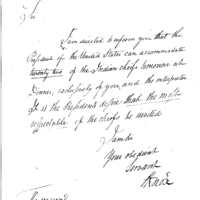 Sir
I am directed to inform you that the
President of the United States can accommodate
twenty two of the Indian chiefs tomorrow at
Dinner, exclusively of you, and the interpreter
It is the Presidents desire that the most
respectable of the chiefs be invited
I am Sir
Your obedient
Servant
HKnox